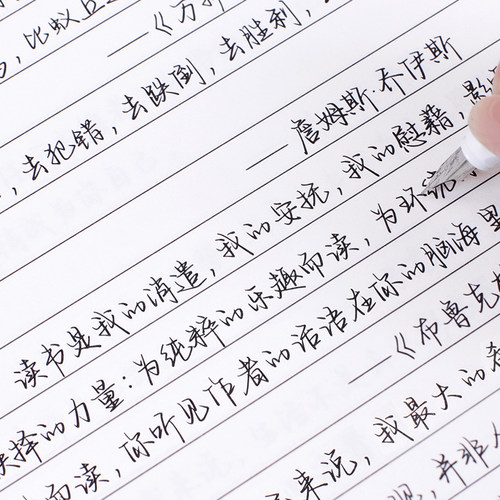 ，比蚁
——《万
，去犯错，去跌倒，去胜利，
——詹姆斯·乔伊斯
读书是我的消遣，我的安抚，我的慰藉，
择的力量：为纯粹的乐趣而读，为环绕
而读，你听见作者的话语在你的脑海里
——《布鲁克
来说，我最大的
，并非人